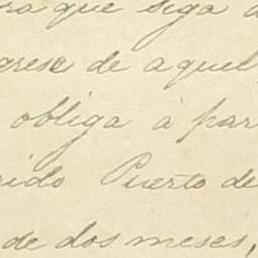 ra que siga a
grese de aquel
obliga à par
rido Puerto de
de dos meses,